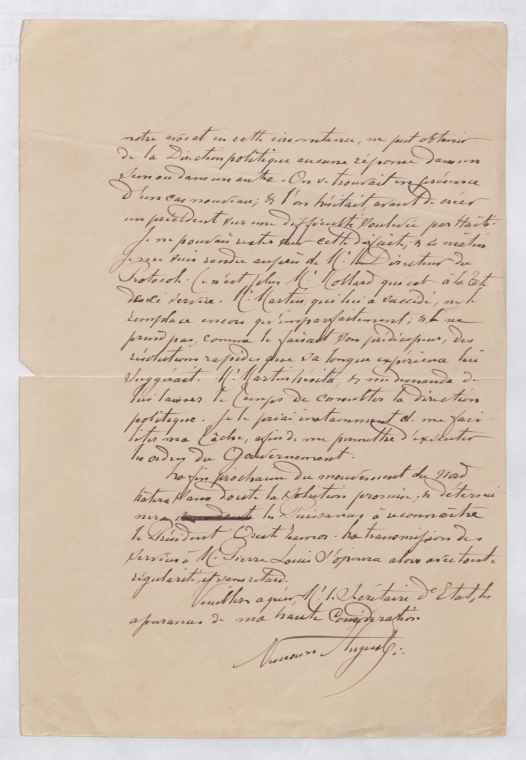 notre avocat en cette circonstance, ne put obtenir
de la Direction politique aucune réponse dans un
sens ou dans un autre. On se trouvait en présence
d'un cas nouveau; & l'on hésitait, avant de créer
un précédent sur une difficulté soulevée par Haïti.
Je ne pouvais rester sur cette défaite, & ce matin
je me suis rendu auprès de Mr. le Directeur du
Protocole. Ce n'est plus Mr. Mollard qui est à la tête
de ce service. Mr. Martin, qui lui a succédé, ne le
remplace encore qu'imparfaitement; & ne
prend pas, comme le faisait son prédécesseur, des
résolutions rapides que sa longue expérience lui
suggérait. Mr. Martin hésita, & me demanda de
lui laisser le temps de consulter la direction
politique. Je le priai instamment de me faci-
liter ma tâche, afin de me permettre d'exécuter
les ordres du Gouvernement.
La fin prochaine du mouvement du Nord
hâtera sans doute la solution promise, & détermi
nera les Puissances à reconnaître
le Président Oreste Zamor. La transmission des
services à Mr. Pierre Louis s'opérera alors avec toute
régularité, et sans retard.
Veuillez agréer, Mr. le Secrétaire d'Etat, les
assurances de ma haute considération
Auguste